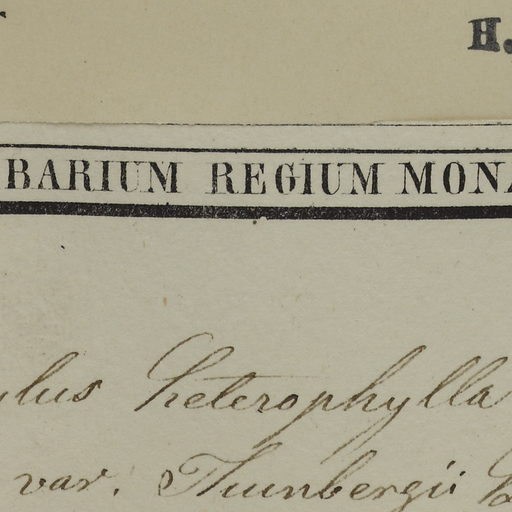 H.
BARIUM REGIUM MONA
ylus heterophylla
var. Thunbergii B